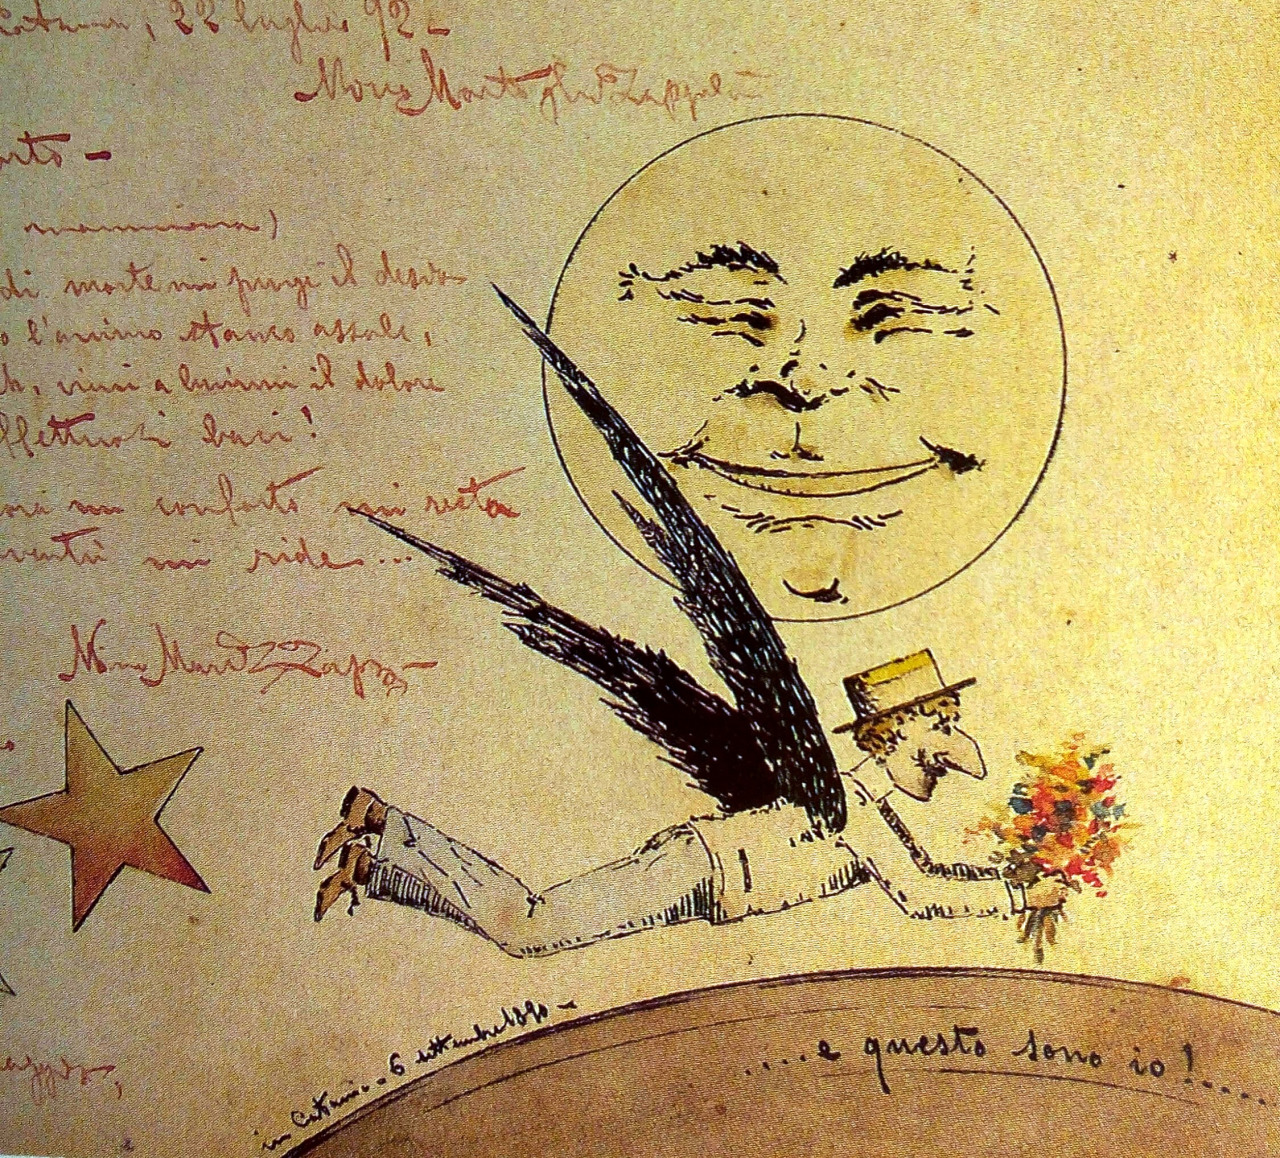 Catania, 22 luglio 92 -
Nino Martoglio Zappalà
mammina)
di morte mi punge il desio
o l'animo stanco assale,
vieni a lenirmi il dolore
affettuosi baci!
un conforto mi resta
mi ride...
Nino
in Catania - 6 settembre 1890 -
....e questo sono io!....